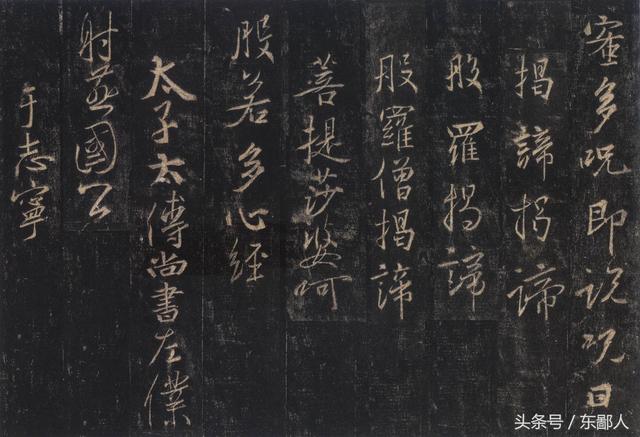 蜜多呪即說呪曰
揭諦揭諦
般羅揭諦
般羅僧揭諦
菩提莎婆呵
般若多心經
太子太傅尚書左僕
射燕國公
于志寧
头条号 / 东鄙人